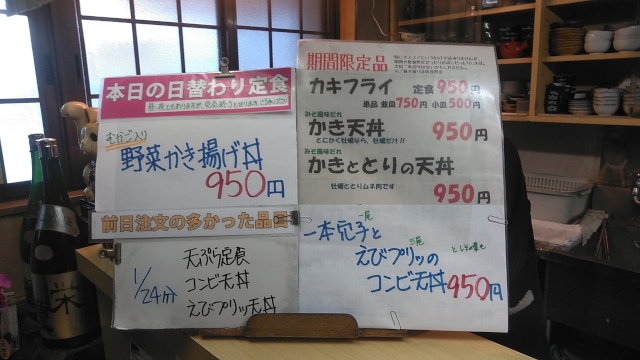 本日の日替わり定食
野菜かき揚げ丼
950円
前日注文の多かった品
1/24分
天ぷら定食
コンビ天丼
えびプリッ天丼
期間限定品
カキフライ 定食950円
単品 並皿750円 小皿500円
みそ風味だれ
かき天丼 950円
とにかく牡蠣なら、牡蠣だけ!!
みそ風味だれ
かきととりの天丼
牡蠣ととりムネ肉です
950円
一本穴子と
えびプリッの
コンビ天丼950円
栄